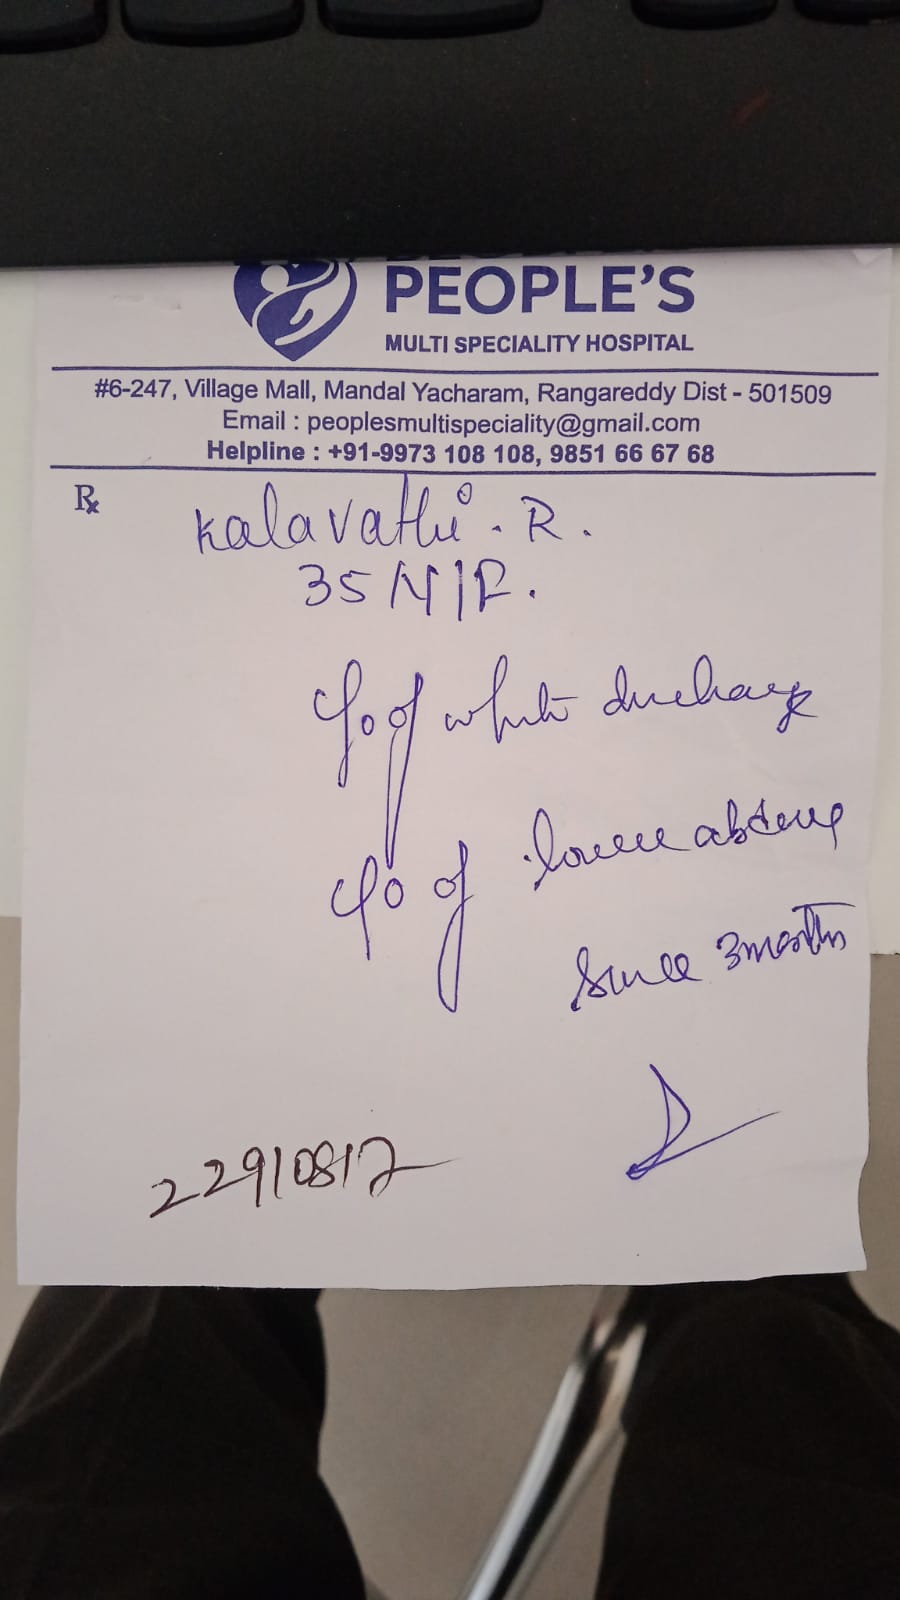 PEOPLE'S
MULTI SPECIALITY HOSPITAL
#6-247, Village Mall, Mandal Yacharam, Rangareddy Dist - 501509
Email : peoplesmultispeciality@gmail.com
Helpline : +91-9973 108 108, 9851 66 67 68
Rx
Kalavathi . R .
35 Y/F .
c/o of white discharge
c/o of lower
since 3 months
22910812